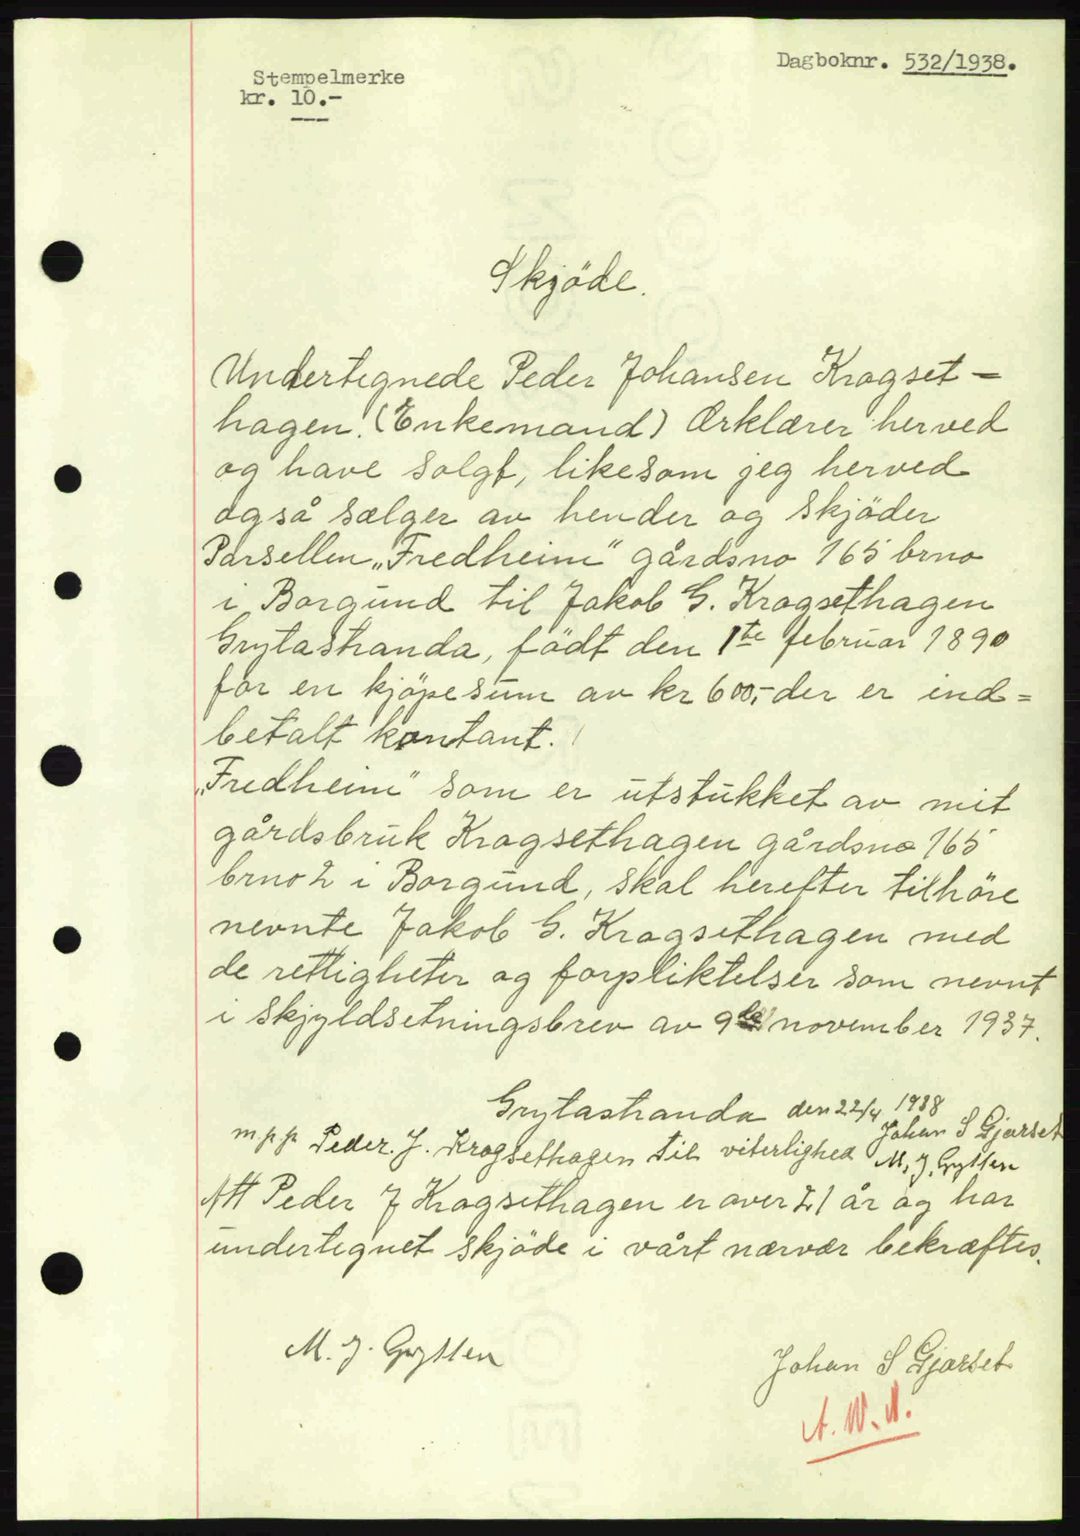 Stempelmerke
kr. 10.-
Dagboknr. 532/1938.
Skjöde.
Undertegnede Peder Johansen Krogset-
hagen. (Enkemand) Ærklærer herved
og have solgt, likesom jeg herved
også sælger av hender og skjöder
Parsellen „Fredheim" gårdsno 165 brno
i Borgund til Jakob G. Krogsethagen
Grytastranda, födt den 1te februar 1890
for en kjöpesum av kr 600,- der er ind=
betalt kontant.
„Fredheim" som er utstukket av mit
gårdsbruk Krogsethagen gårdsno 165
brno 2 i Borgund, skal herefter tilhöre
nevnte Jakob G. Krogsethagen med
de rettigheter og forpliktelser som nevnt
i skjyldsetningsbrev av 9de november 1937.
Grytastranda den 22/4 1938
m p p Peder. J. Krogsethagen til viterlighed Johan S Gjærset
M. J. Grytten
Att Peder J Krogsethagen er over 21 år og har
undertegnet skjöde i vårt nærvær bekræftes.
M. J. Grytten
Johan S Gjærset
A. W. N.